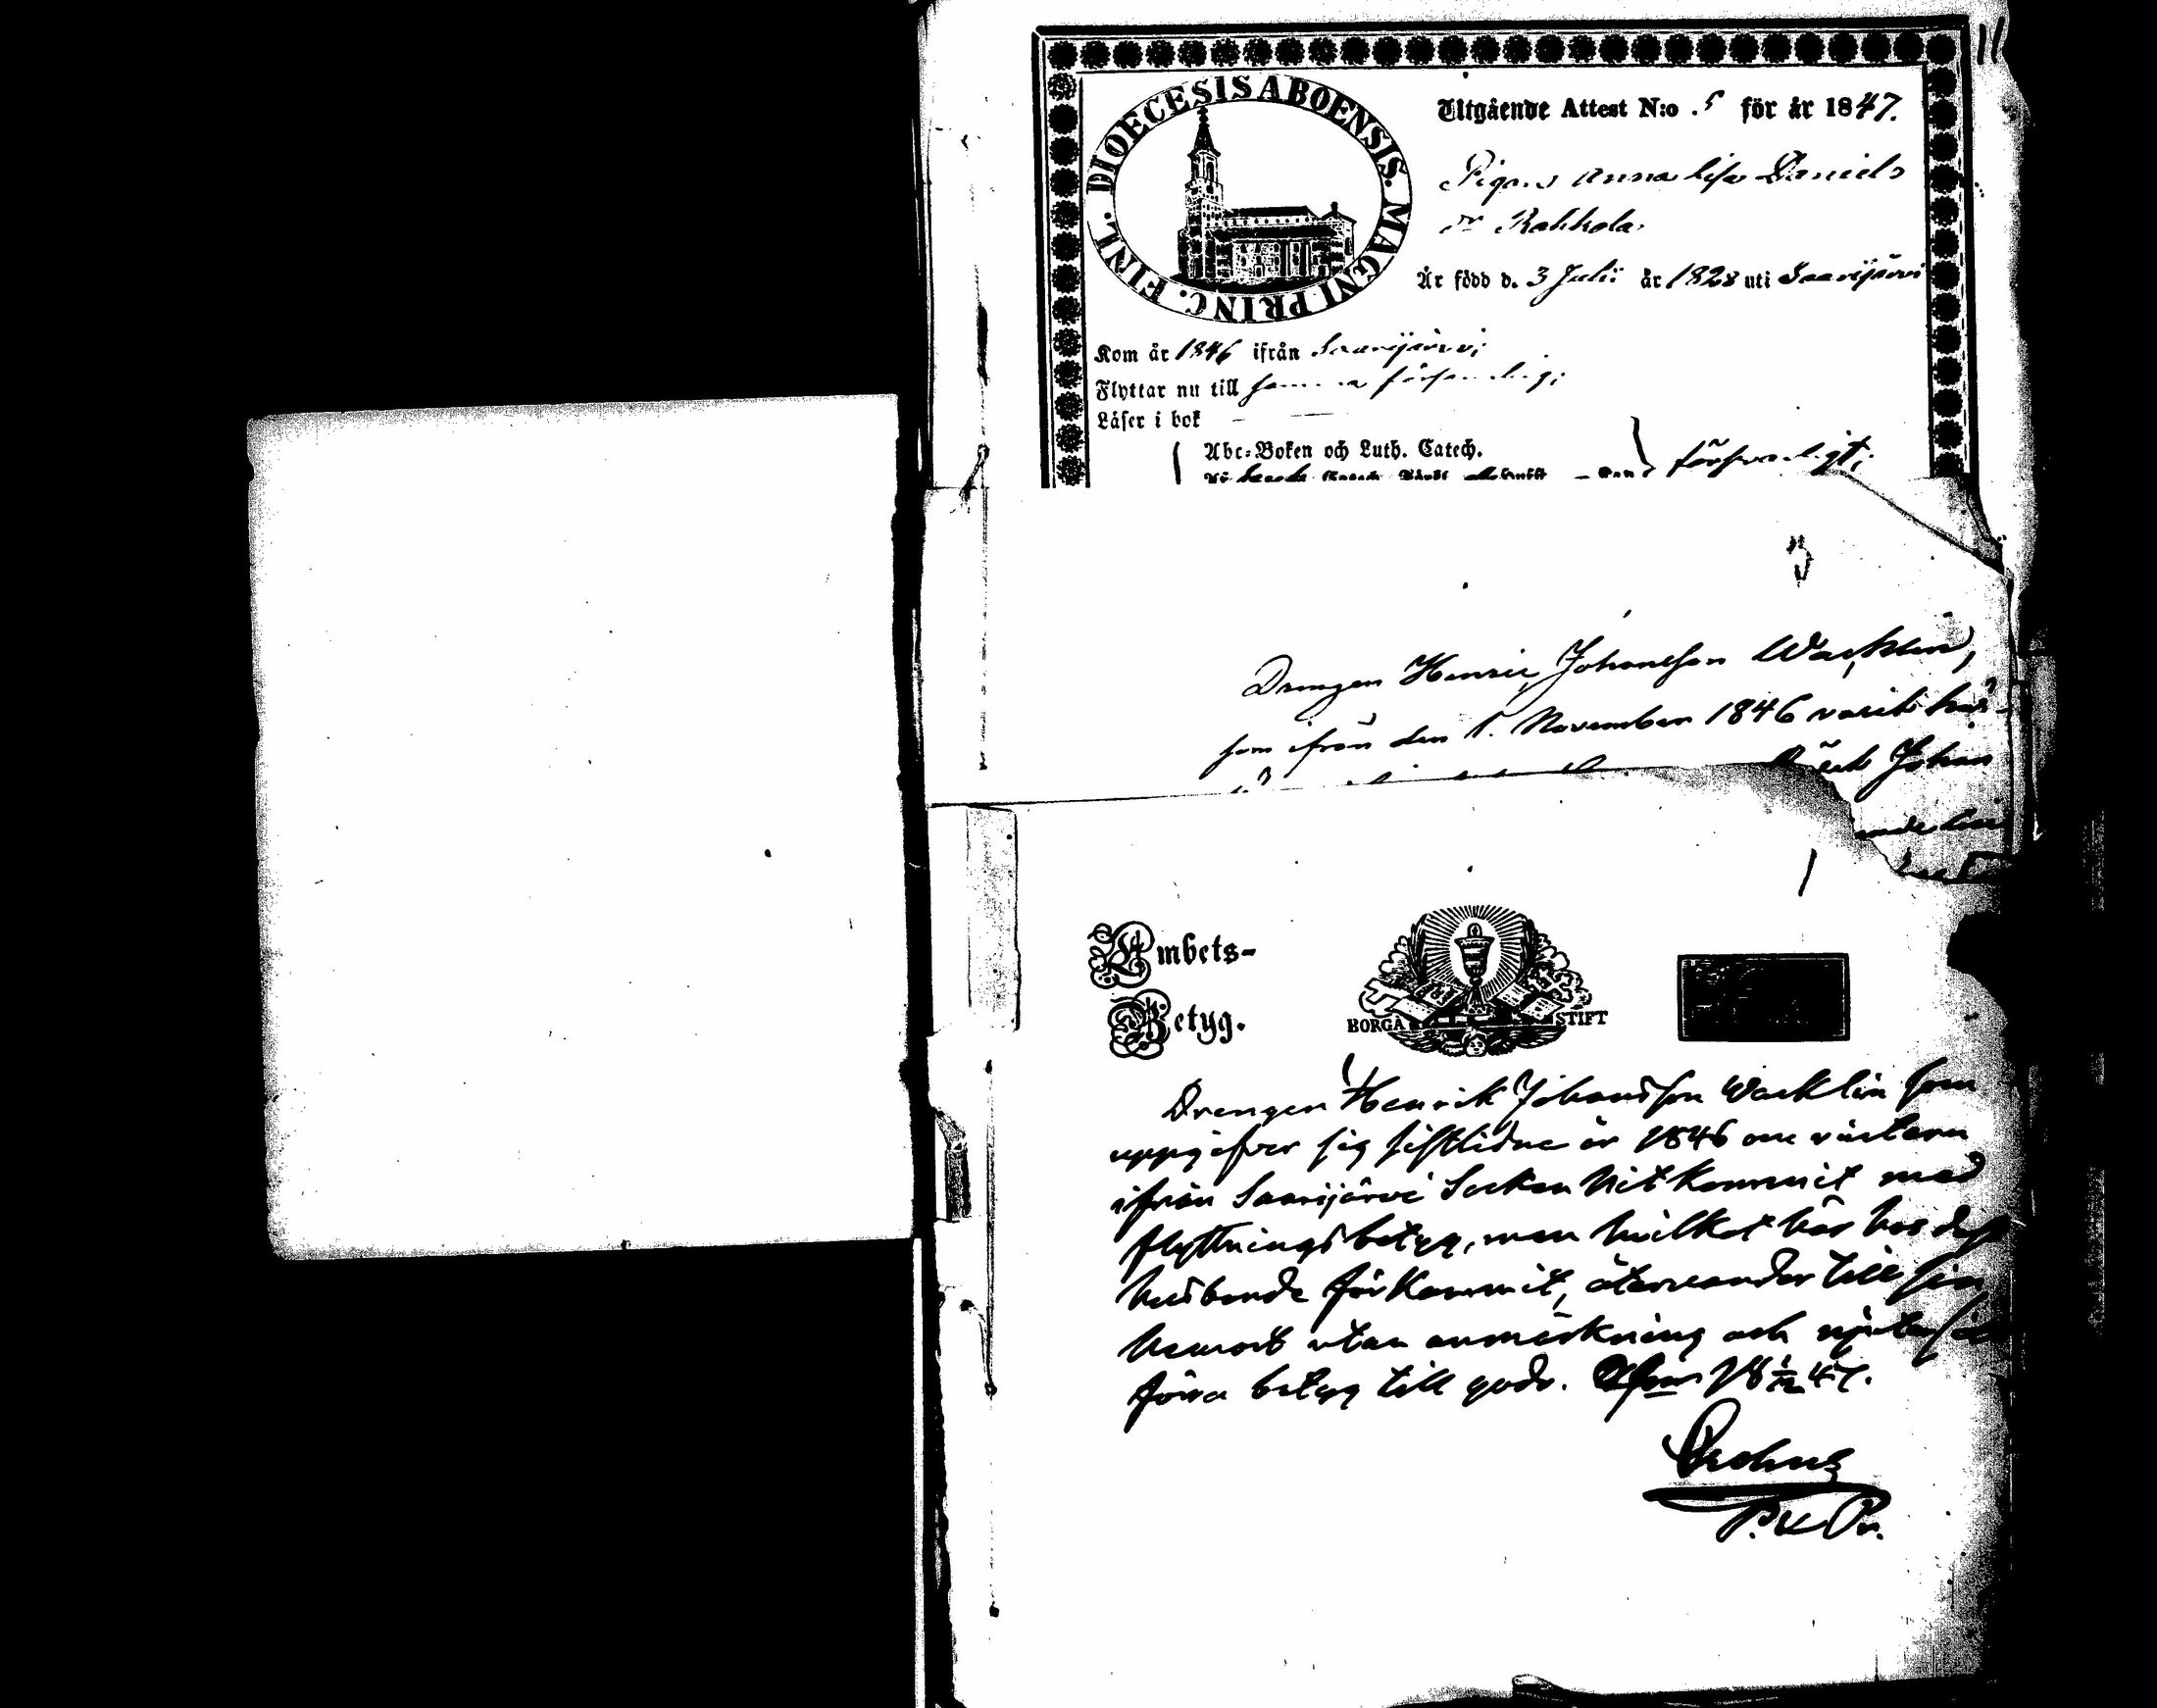 11
DIOECESIS ABOENSIS. MAGNI PRINC. FINL.
Utgående Attest N:o 5 för år 1847.
Pigan Anna Lisa Daniels
dr Kahkola
Är född d. 3 Julii år 1828 uti Saarijärvi
Kom år 1846 ifrån Saarijärvi
Flyttar nu till samma församling
Läser i bok
Abc-Boken och Luth. Catech.
försvarligt
3
Drengen Henric Johansson Wacklin,
som ifrån den 1. November 1846 varit här
Johan
1
Embets-
Betyg.
BORGÅ STIFT
Drengen Henrik Johansson Wacklin som
uppgifver sig sistlidne år 1846 om vintern
ifrån Saarijärvi Socken hit kommit med
flyttningsbetyg, men hvilket här hos dess
husbonde förkommit, återvänder till sin
hemort utan anmärkning och njuter sitt
förra betyg till godo. 18 1/12 47.